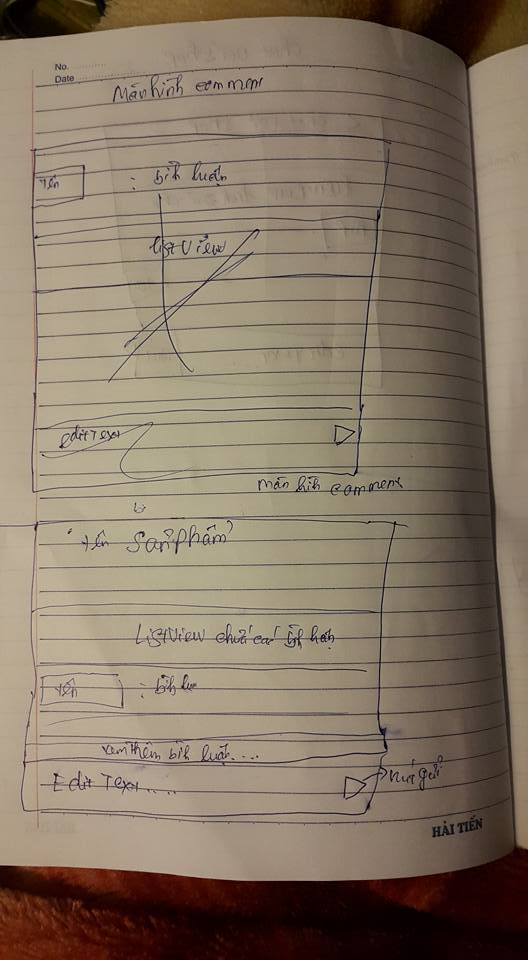 No. ............
Date ............
Màn hình comment
Tên : bình luận
ListView
EditText
màn hình comment
Tên Sản phẩm
ListView chứa các bình luận
Tên : bình lu
xem thêm bình luận....
Edit Text.....
nút gửi
HẢI TIẾN